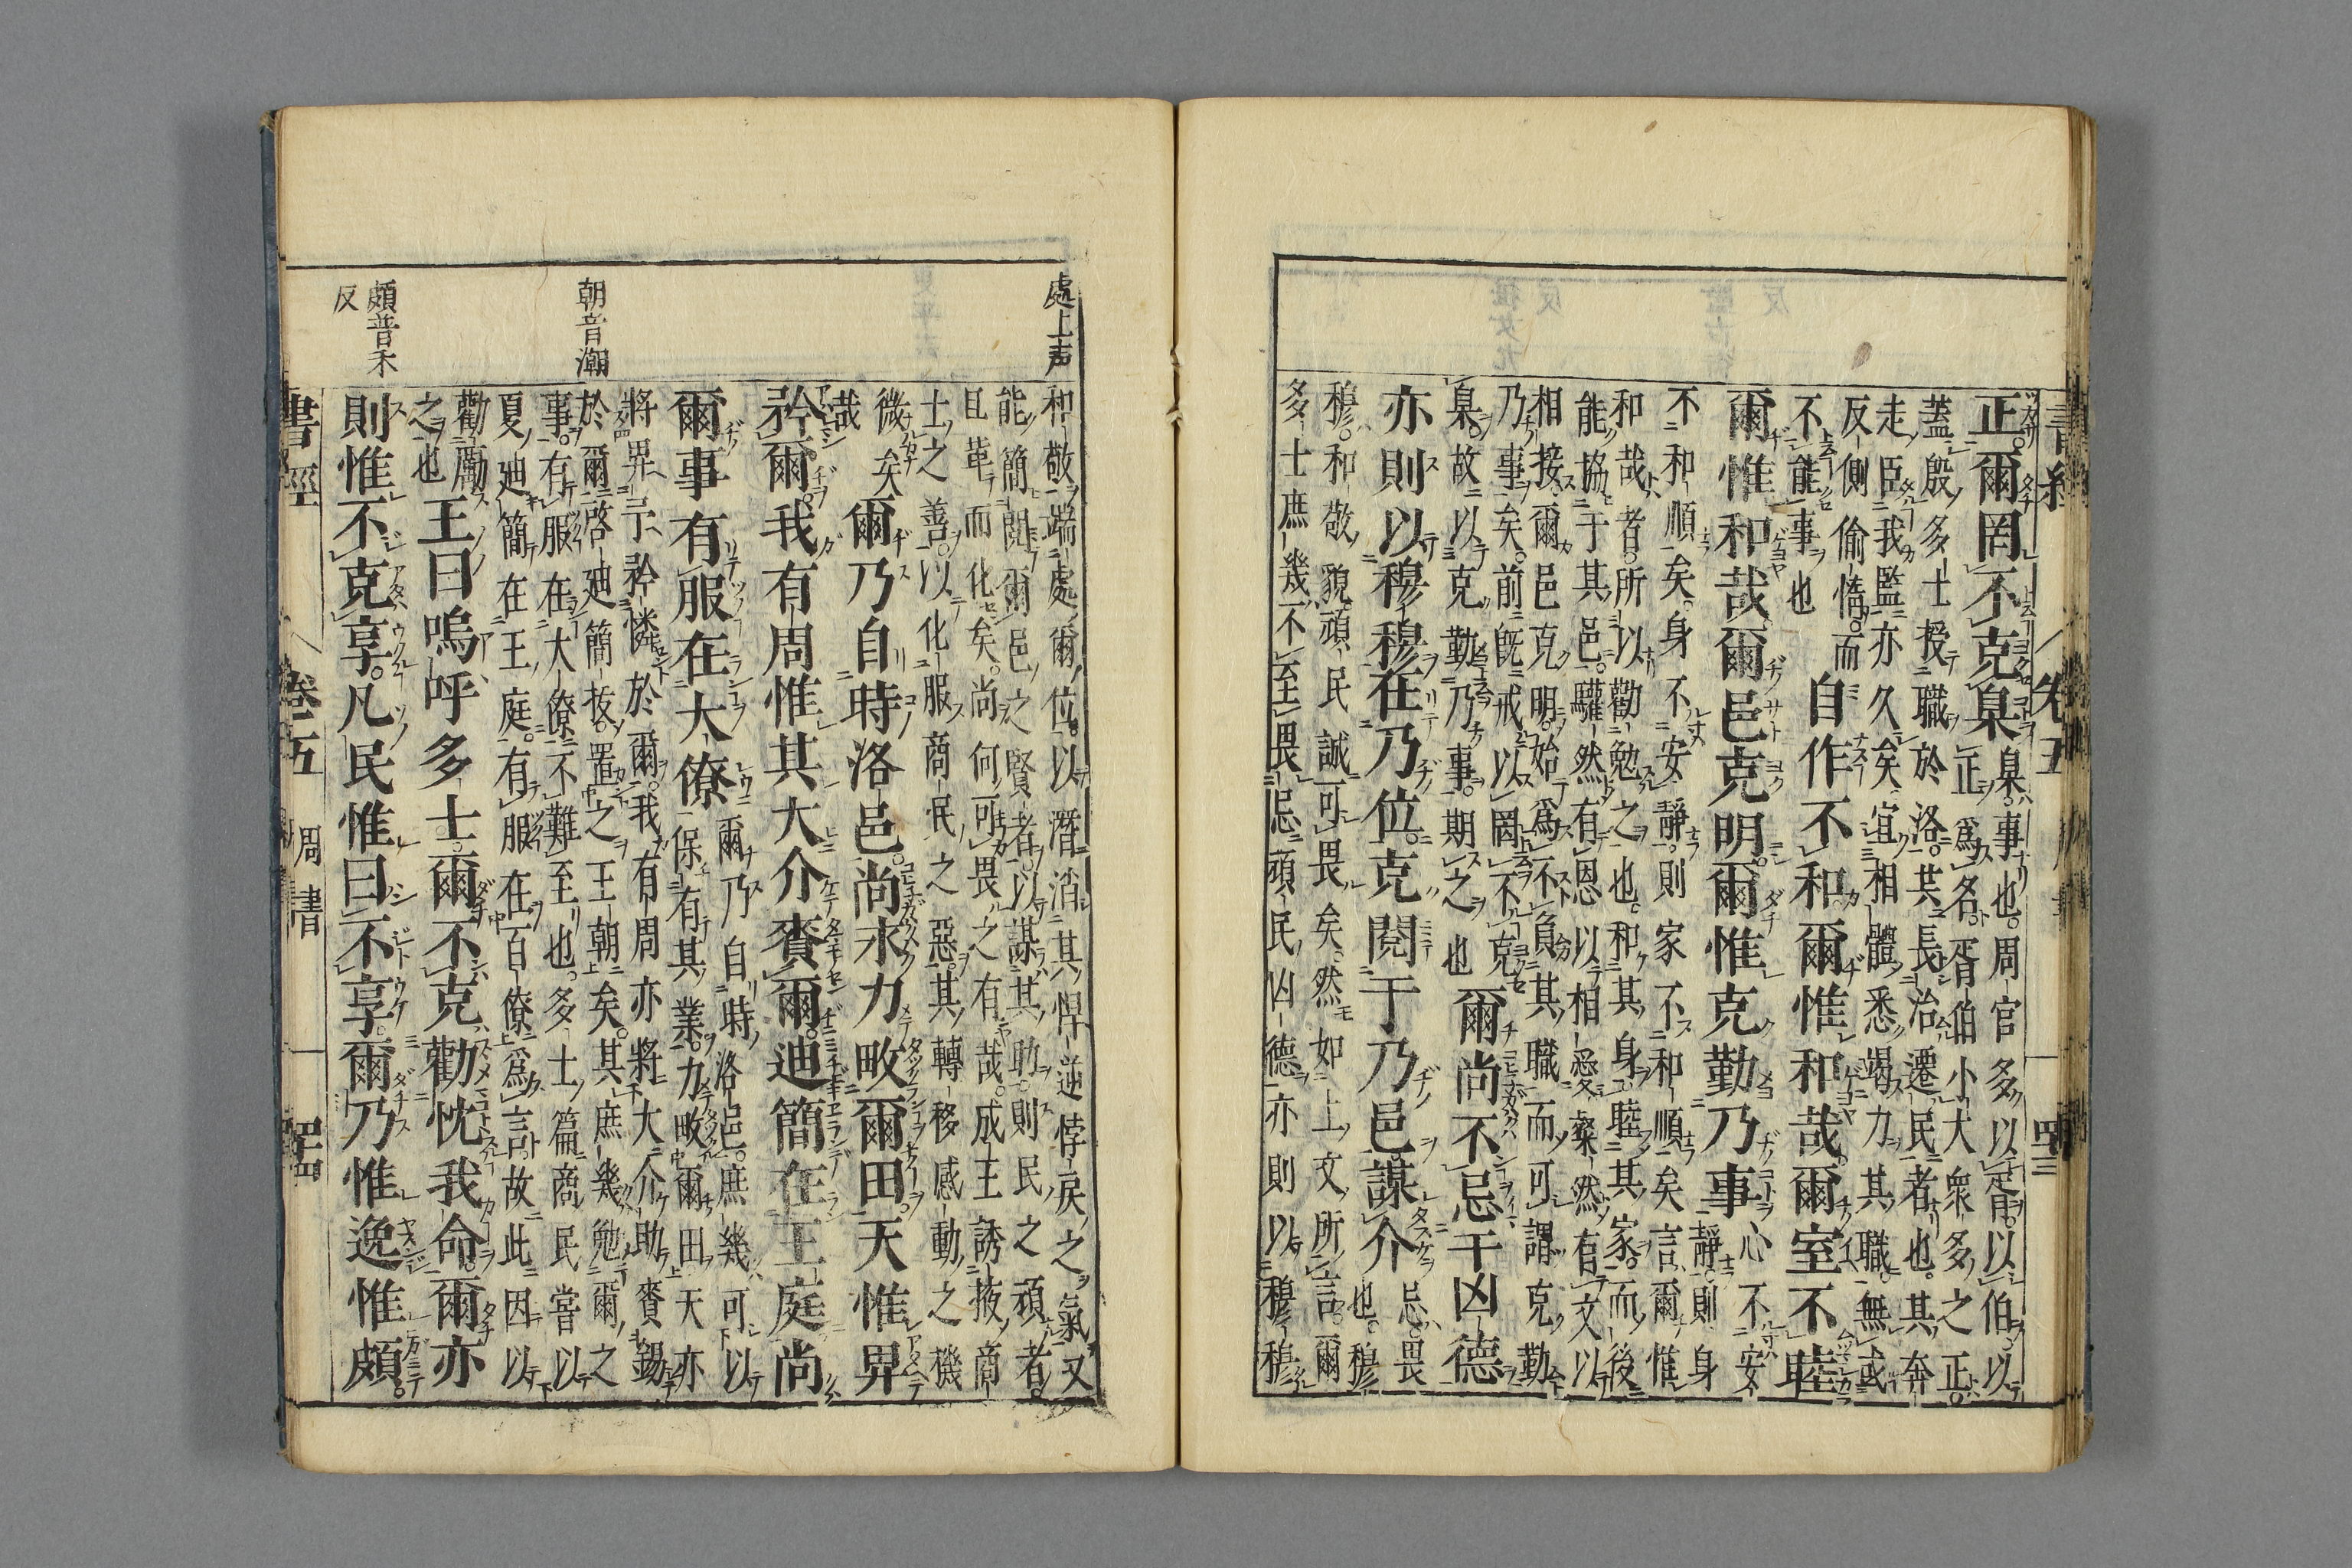 正爾罔不克臬
臬事也周官多以胥以伯以
正爲名胥伯小大衆多之正
蓋殷多士授職於洛共長治遷民者也其奔
走臣我監亦久矣宜相體悉竭力其職無或
反側偷惰而
不能事也
自作不和爾惟和哉爾室不睦
爾惟和哉爾邑克明爾惟克勤乃事
心不安
靜則身
不和順矣身不安靜則家不和順矣言爾惟
和哉者所以勸勉之也和其身睦其家而後
能協于其邑驩然有恩以相愛粲然有文以
相接爾邑克明始爲不負其職而可謂克勤
乃事矣前既戒以罔不克
臬故以克勤乃事期之也
爾尚不忌于凶德
亦則以穆穆在乃位克閱于乃邑謀介
忌畏
也穆
穆和敬貌頑民誠可畏矣然如上文所言爾
多士庶幾不至畏忌頑民凶德亦則以穆穆
處上声
和敬端處爾位以潛消其悍逆悖戾之氣又
能簡閱爾邑之賢者以謀其助則民之頑者
且革而化矣尚何可畏之有哉成王誘掖商
士之善以化服商民之惡其轉移感動之機
微矣
哉
爾乃自時洛邑尚永力畋爾田天惟畀
矜爾我有周惟其大介賚爾迪簡在王庭尚
爾事有服在大僚
爾乃自時洛邑庶幾可以
保有其業力畋爾田天亦
朝音潮
將畀予矜憐於爾我有周亦將大介助賚錫
於爾啓迪簡拔置之王朝矣其庶幾勉爾之
事有服在大僚不難至也多士篇商民嘗以
夏迪簡在王庭有服在百僚爲言故此因以
勸勵
之也
王曰嗚呼多士爾不克勸忱我命爾亦
頗普禾
反
則惟不克享凡民惟曰不享爾乃惟逸惟頗
書經 卷五 周書 四十四